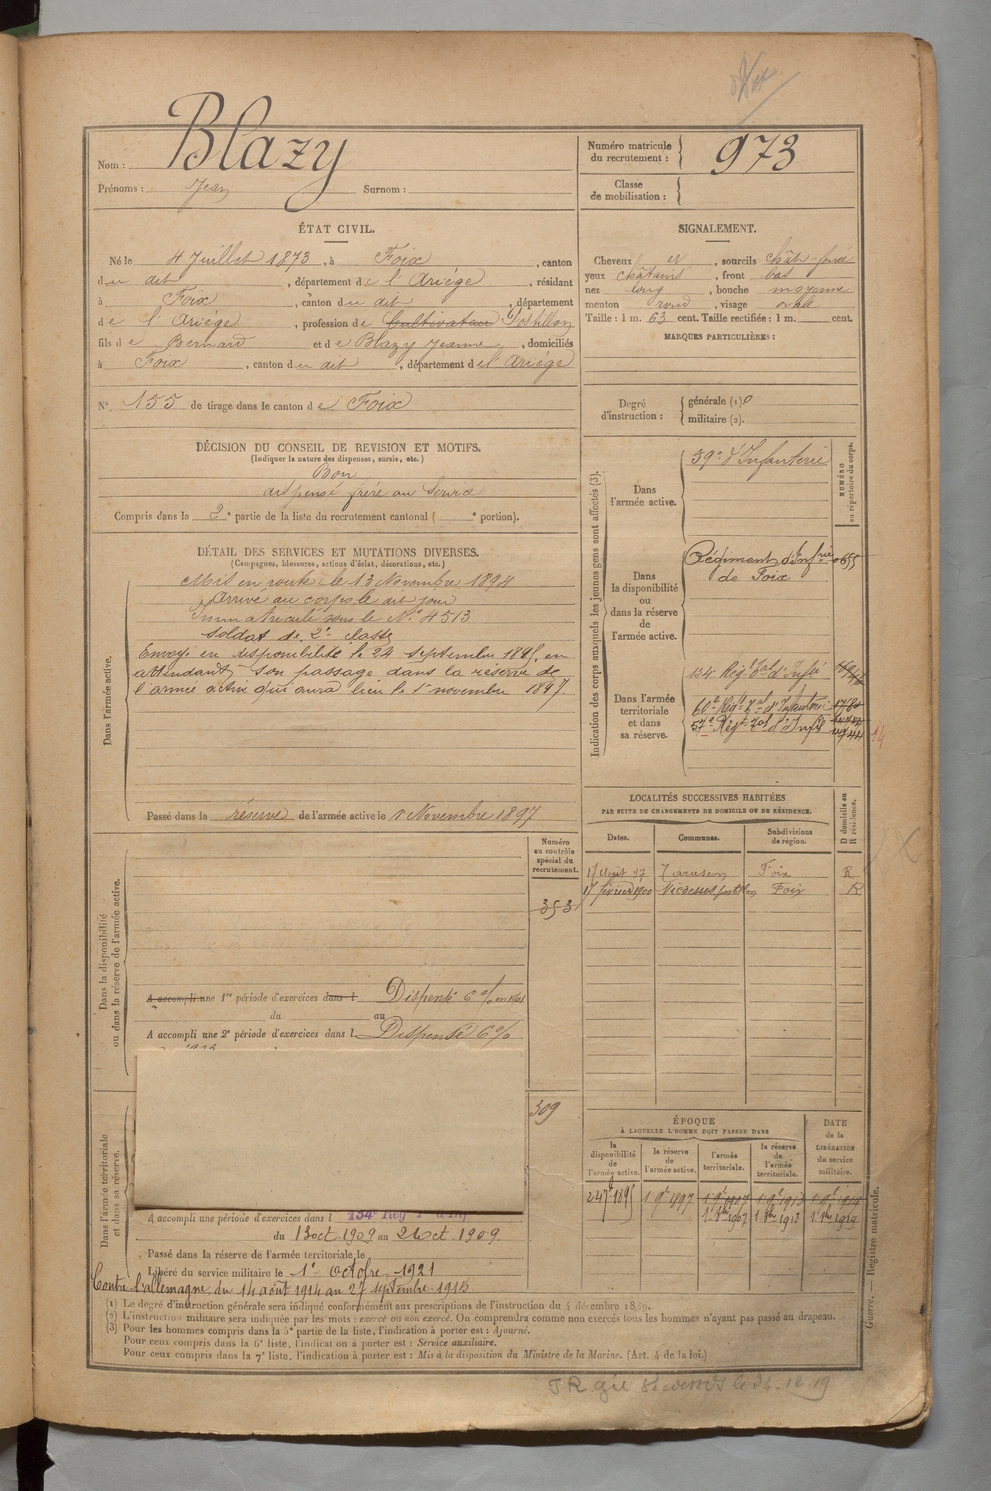 Nom : Blazy
Prénoms : Jean Surnom :
Numéro matricule du recrutement : 973
Classe de mobilisation :
ÉTAT CIVIL.
Né le 4 Juillet 1873, à Foix, canton
du dit, département de l'Ariége, résidant
à Foix, canton du dit, département
de l'Ariége, profession de Cultivateur Postillon
fils de Bernard et de Blazy Jeanne, domiciliés
à Foix, canton du dit, département de l'Ariége
N° 155 de tirage dans le canton de Foix
SIGNALEMENT.
Cheveux et, sourcils chât-foncé
yeux châtains, front bas
nez long, bouche moyenne
menton rond, visage ovale
Taille : 1 m. 63 cent. Taille rectifiée : 1 m. cent.
MARQUES PARTICULIÈRES :
Degré d'instruction : générale (1) 0
militaire (2).
DÉCISION DU CONSEIL DE REVISION ET MOTIFS.
(Indiquer la nature des dispenses, sursis, etc.)
Bon
dispensé frère au Service
Compris dans la 2e partie de la liste du recrutement cantonal ( e portion).
DÉTAIL DES SERVICES ET MUTATIONS DIVERSES.
(Campagnes, blessures, actions d'éclat, décorations, etc.)
Dans l'armée active.
Mis en route le 13 Novembre 1894
Arrivé au corps le dit jour
Immatriculé sous le N° 4513
Soldat de 2e classe
Envoyé en disponibilité le 24 septembre 1895, en
attendant son passage dans la réserve de
l'armée active qui aura lieu le 1er novembre 1897.
Passé dans la réserve de l'armée active le 1 Novembre 1897
Indication des corps auxquels les jeunes gens sont affectés (3).
NUMÉRO au répertoire du corps.
Dans l'armée active.
59e d'Infanterie
Dans la disponibilité ou dans la réserve de l'armée active.
Régiment d'Infrie de Foix 0655
Dans l'armée territoriale et dans sa réserve.
134e Régt Tal d'Infie
60e Régt Tal d'Infanterie 1780
57e Régt Tal d'Infie
14
LOCALITÉS SUCCESSIVES HABITÉES
PAR SUITE DE CHANGEMENTS DE DOMICILE OU DE RÉSIDENCE.
D domicile ou R résidence.
Dates. Communes. Subdivisions de région.
17 Août 97 Tarascon Foix R
15 février 1900 Vicdessos postillon Foix R
Numéro au contrôle spécial du recrutement.
353
Dans la disponibilité ou dans la réserve de l'armée active.
A accompli une 1re période d'exercices dans l Dispensé 6 %
du au
A accompli une 2e période d'exercices dans l Dispensé 6 %
309
Dans l'armée territoriale et dans sa réserve.
A accompli une période d'exercices dans l 134e Rég
du 13 oct 1909 au 21 oct 1909
Passé dans la réserve de l'armée territoriale le
Libéré du service militaire le 1er Octobre 1921
Contre l'allemagne, du 14 août 1914 au 27 septembre 1915
ÉPOQUE
À LAQUELLE L'HOMME DOIT PASSER DANS
DATE de la LIBÉRATION du service militaire.
la disponibilité de l'armée active. la réserve de l'armée active. l'armée territoriale. la réserve de l'armée territoriale.
24 7bre 1895 1 9bre 1897 1 9bre 1907 1 9bre 1913 1 9bre 1919
1 8bre 1907 1 8bre 1913 1 8bre 1919
(1) Le degré d'instruction générale sera indiqué conformément aux prescriptions de l'instruction du 4 décembre 1889.
(2) L'instruction militaire sera indiquée par les mots : exercé ou non exercé. On comprendra comme non exercés tous les hommes n'ayant pas passé au drapeau.
(3) Pour les hommes compris dans la 5e partie de la liste, l'indication à porter est : Ajourné.
Pour ceux compris dans la 6e liste, l'indication à porter est : Service auxiliaire.
Pour ceux compris dans la 7e liste, l'indication à porter est : Mis à la disposition du Ministre de la Marine. (Art. 4 de la loi.)
Guerre. — Registre matricule.